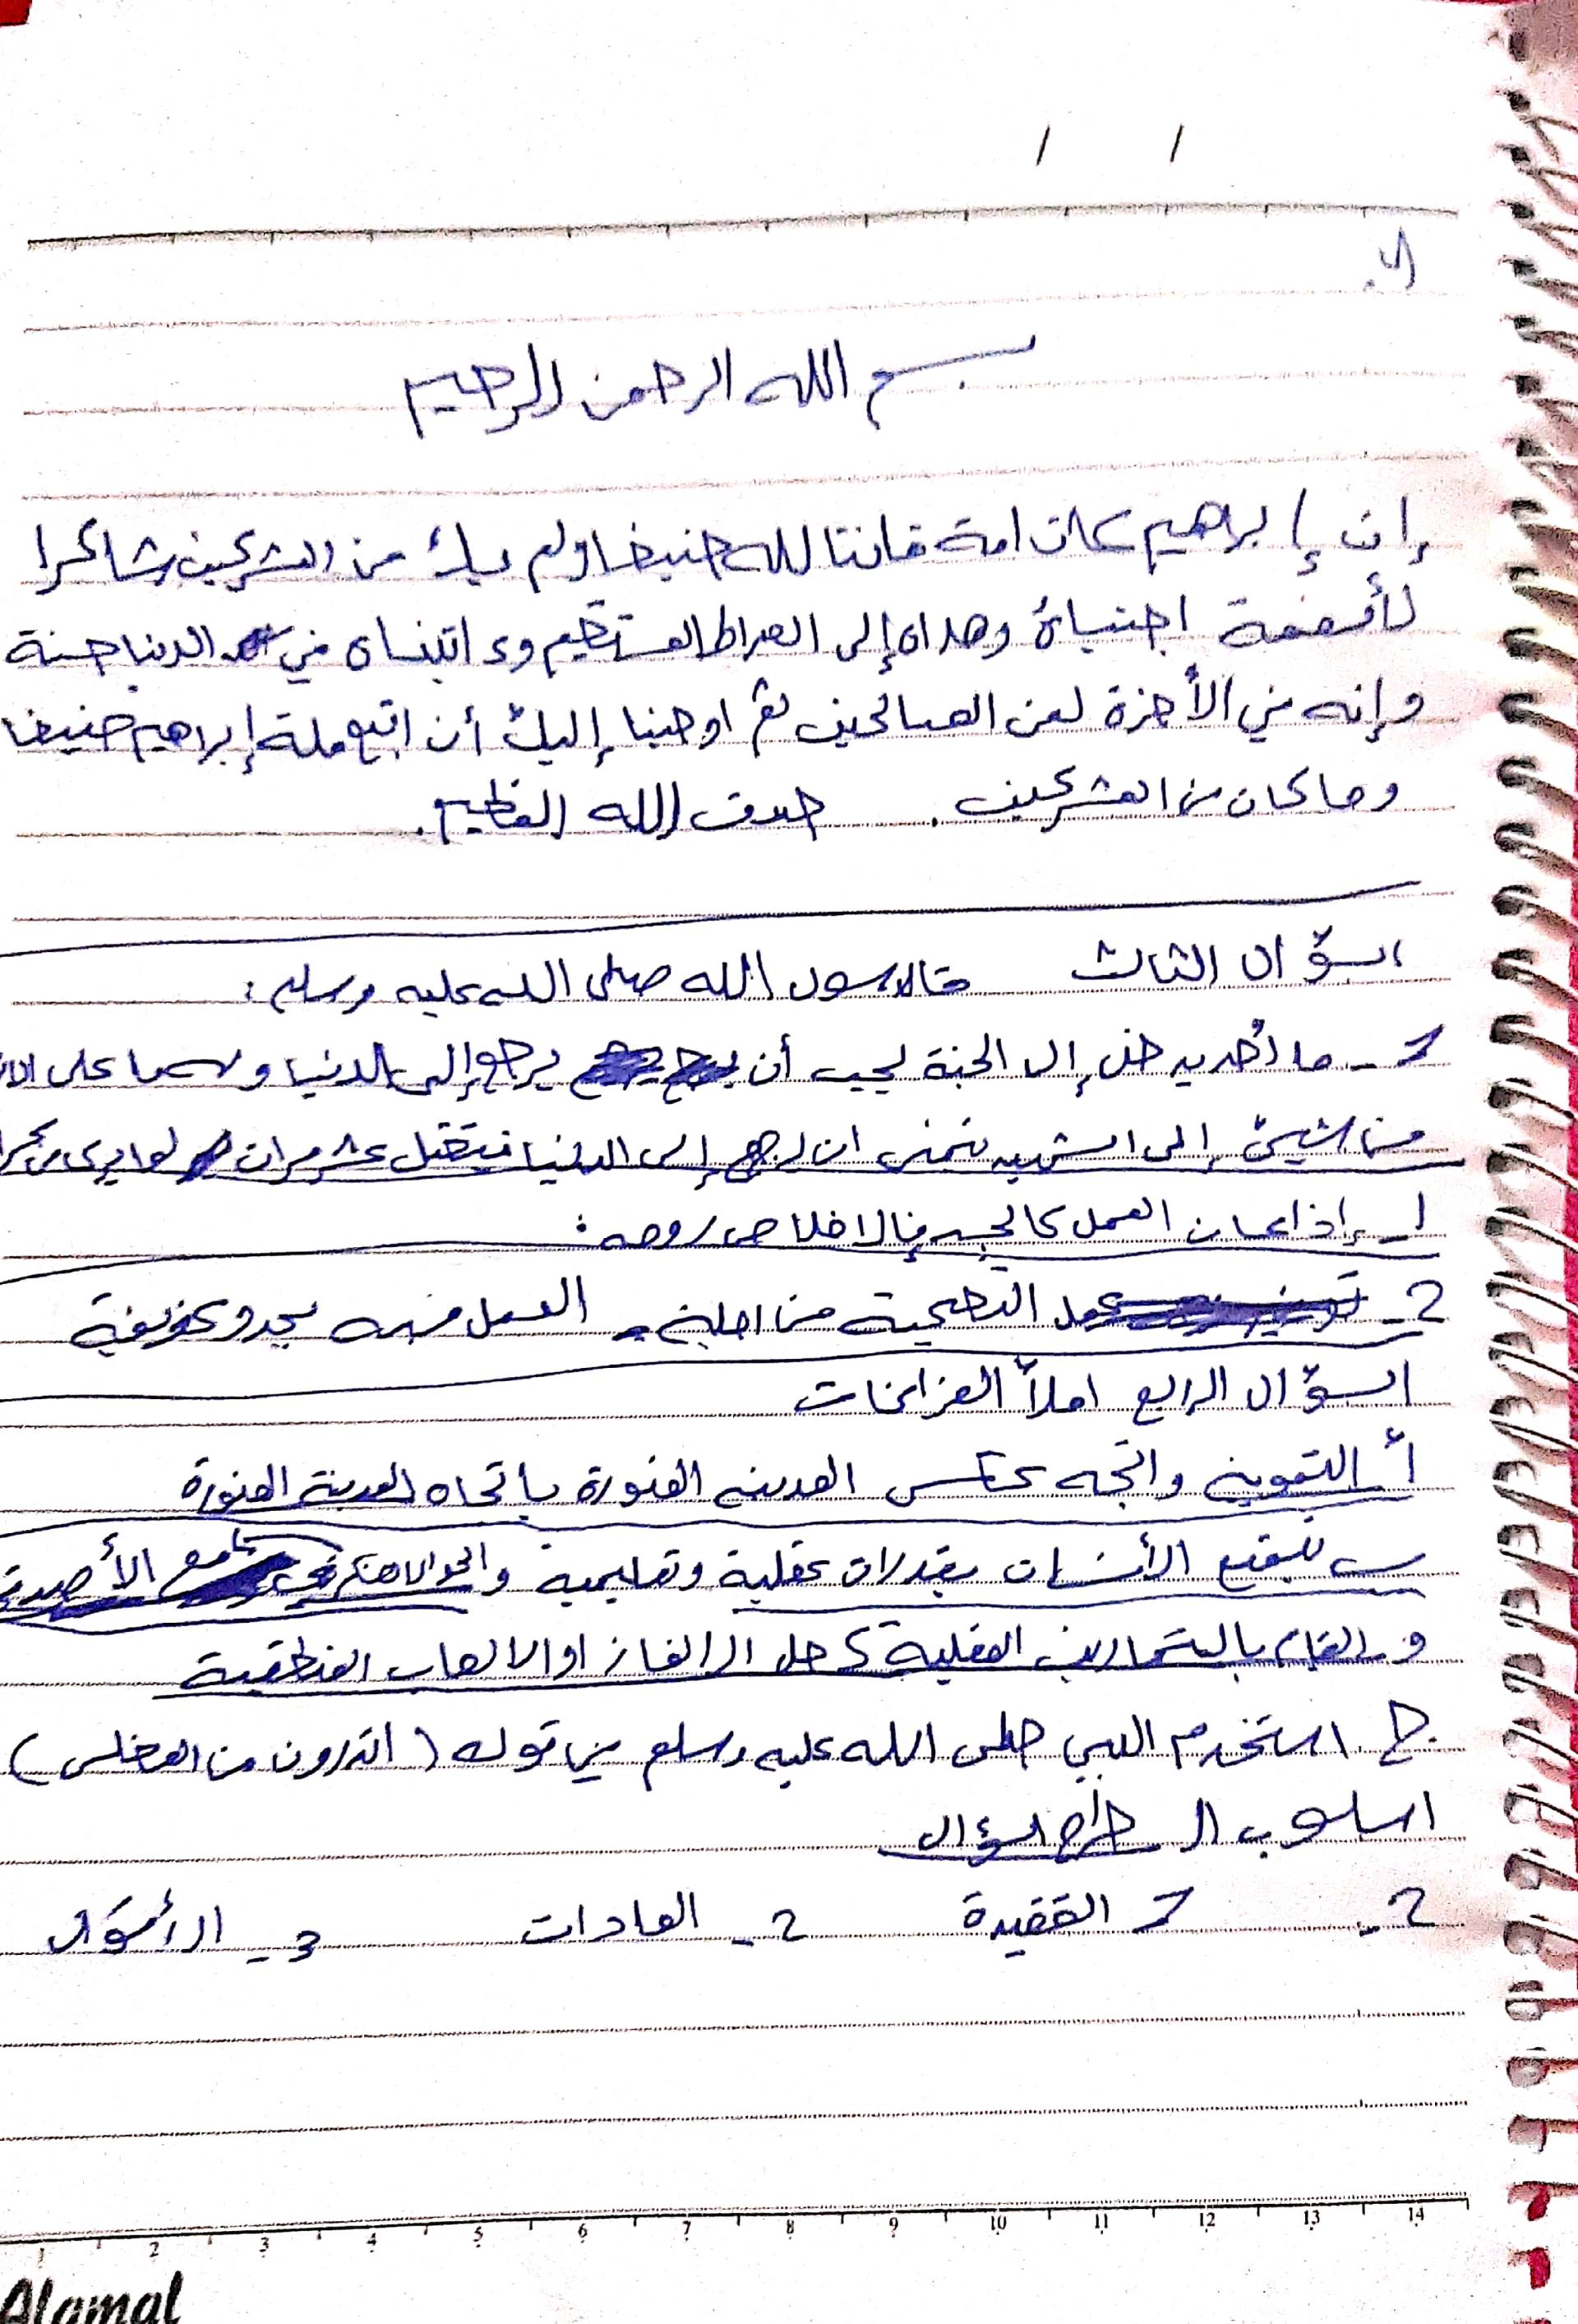 / /
بسم الله الرحمن الرحيم
إن إبراهيم كان امة قانتا لله حنيفا ولم يك من المشركين شاكرا
لأنعمة اجتباة وهداه إلى الصراط المستقيم وءاتيناه في الدنيا حسنة
وإنه في الأخرة لمن الصالحين ثم اوحينا إليك أن اتبع ملة إبراهيم حنيفا
وما كان من المشركين . صدق الله العظيم .
السؤال الثالث قال رسول الله صلى الله عليه وسلم :
1- ما أحد يدخل إلى الجنة يحب أن يرجع إلى الدنيا وله ما على
من شيئ إلى الشهيد يتمنى ان يرجع إلى الدنيا فيقتل عشر مرات لما يرى من
1- إذا كان العمل كالجسد فالاخلاص روحه :
2- التضحية من اجله . العمل منه يبدو
السؤال الرابع املأ الفراغات
أ التموية واتجه عكس المدينه المنورة باتجاه المدينة المنورة
ب يتمتع الأنسان بقدرات عقلية وتعليمية والحوار مع الأصدقاء
و القيام بالتمارين العقلية ك حل الالغاز او الالعاب المنطقية
ج. استخدم النبي صلى الله عليه وسلم في قوله ( اتدرون من المفلس )
اسلوب ال طرح السؤال
2- 1 العقيدة 2- العادات 3- الأموال
1 2 3 4 5 6 7 8 9 10 11 12 13 14
Alamal